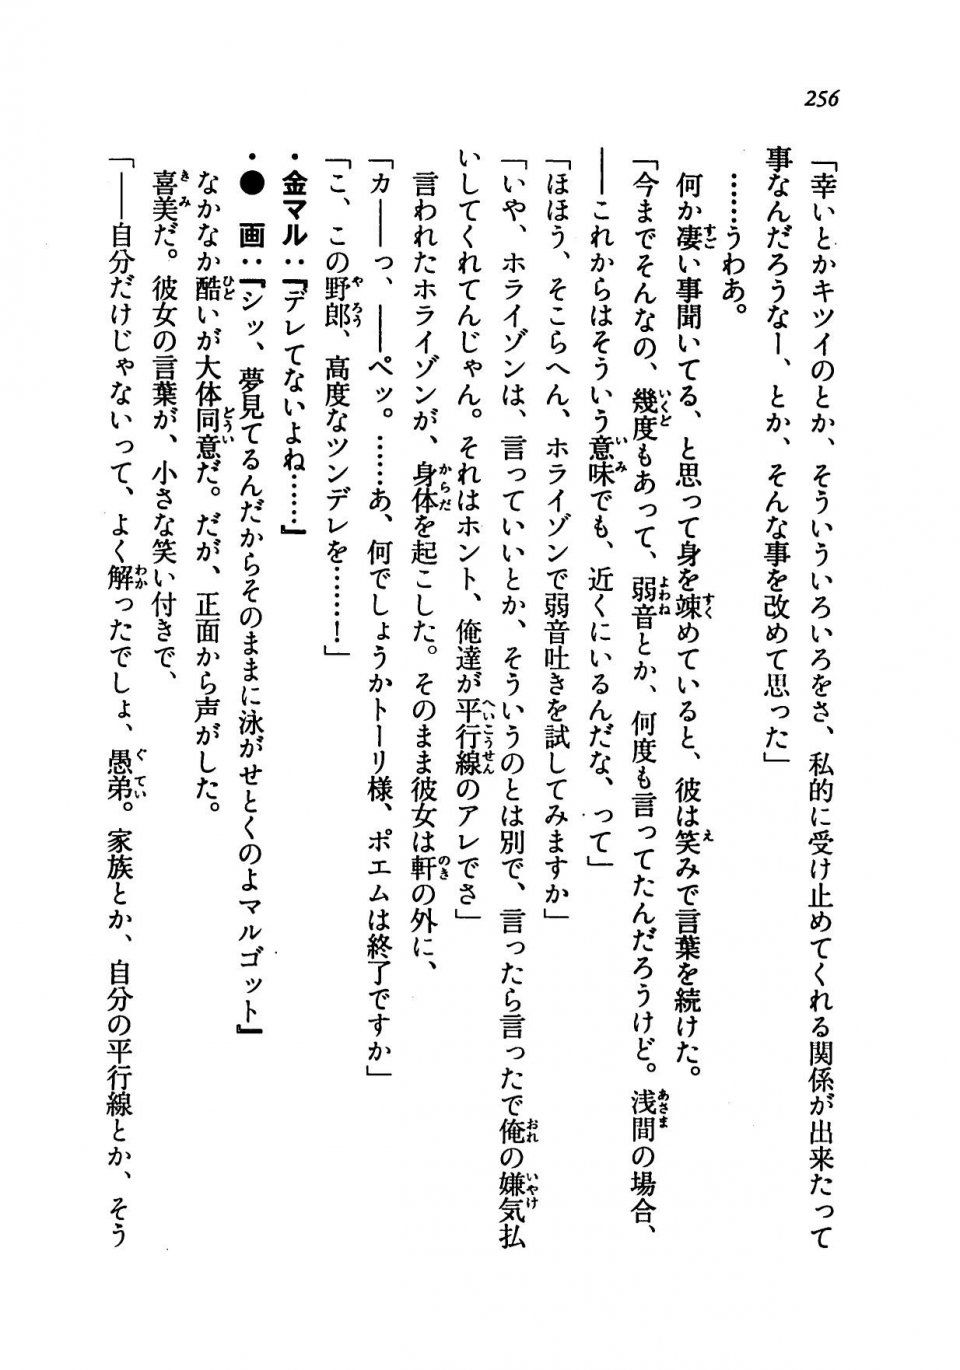 256
「幸いとかキツイのとか、そういういろいろをさ、私的に受け止めてくれる関係が出来たって
事なんだろうなー、とか、そんな事を改めて思った」
……うわあ。
何か凄い事聞いてる、と思って身を竦めていると、彼は笑みで言葉を続けた。
「今までそんなの、幾度もあって、弱音とか、何度も言ってたんだろうけど。浅間の場合、
――これからはそういう意味でも、近くにいるんだな、って」
「ほほう、そこらへん、ホライゾンで弱音吐きを試してみますか」
「いや、ホライゾンは、言っていいとか、そういうのとは別で、言ったら言ったで俺の嫌気払
いしてくれてんじゃん。それはホント、俺達が平行線のアレでさ」
言われたホライゾンが、身体を起こした。そのまま彼女は軒の外に、
「カ――っ、――ペッ。……あ、何でしょうかトーリ様、ポエムは終了ですか」
「こ、この野郎、高度なツンデレを……！」
・金マル：『デレてないよね……』
・●　画：『シッ、夢見てるんだからそのままに泳がせとくのよマルゴット』
なかなか酷いが大体同意だ。だが、正面から声がした。
喜美だ。彼女の言葉が、小さな笑い付きで、
「――自分だけじゃないって、よく解ったでしょ、愚弟。家族とか、自分の平行線とか、そう